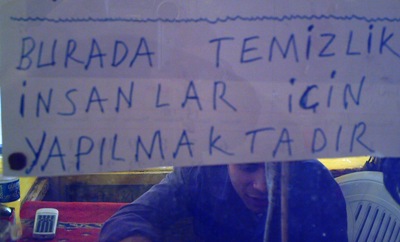 BURADA TEMİZLİK
İNSANLAR İÇİN
YAPILMAKTADIR